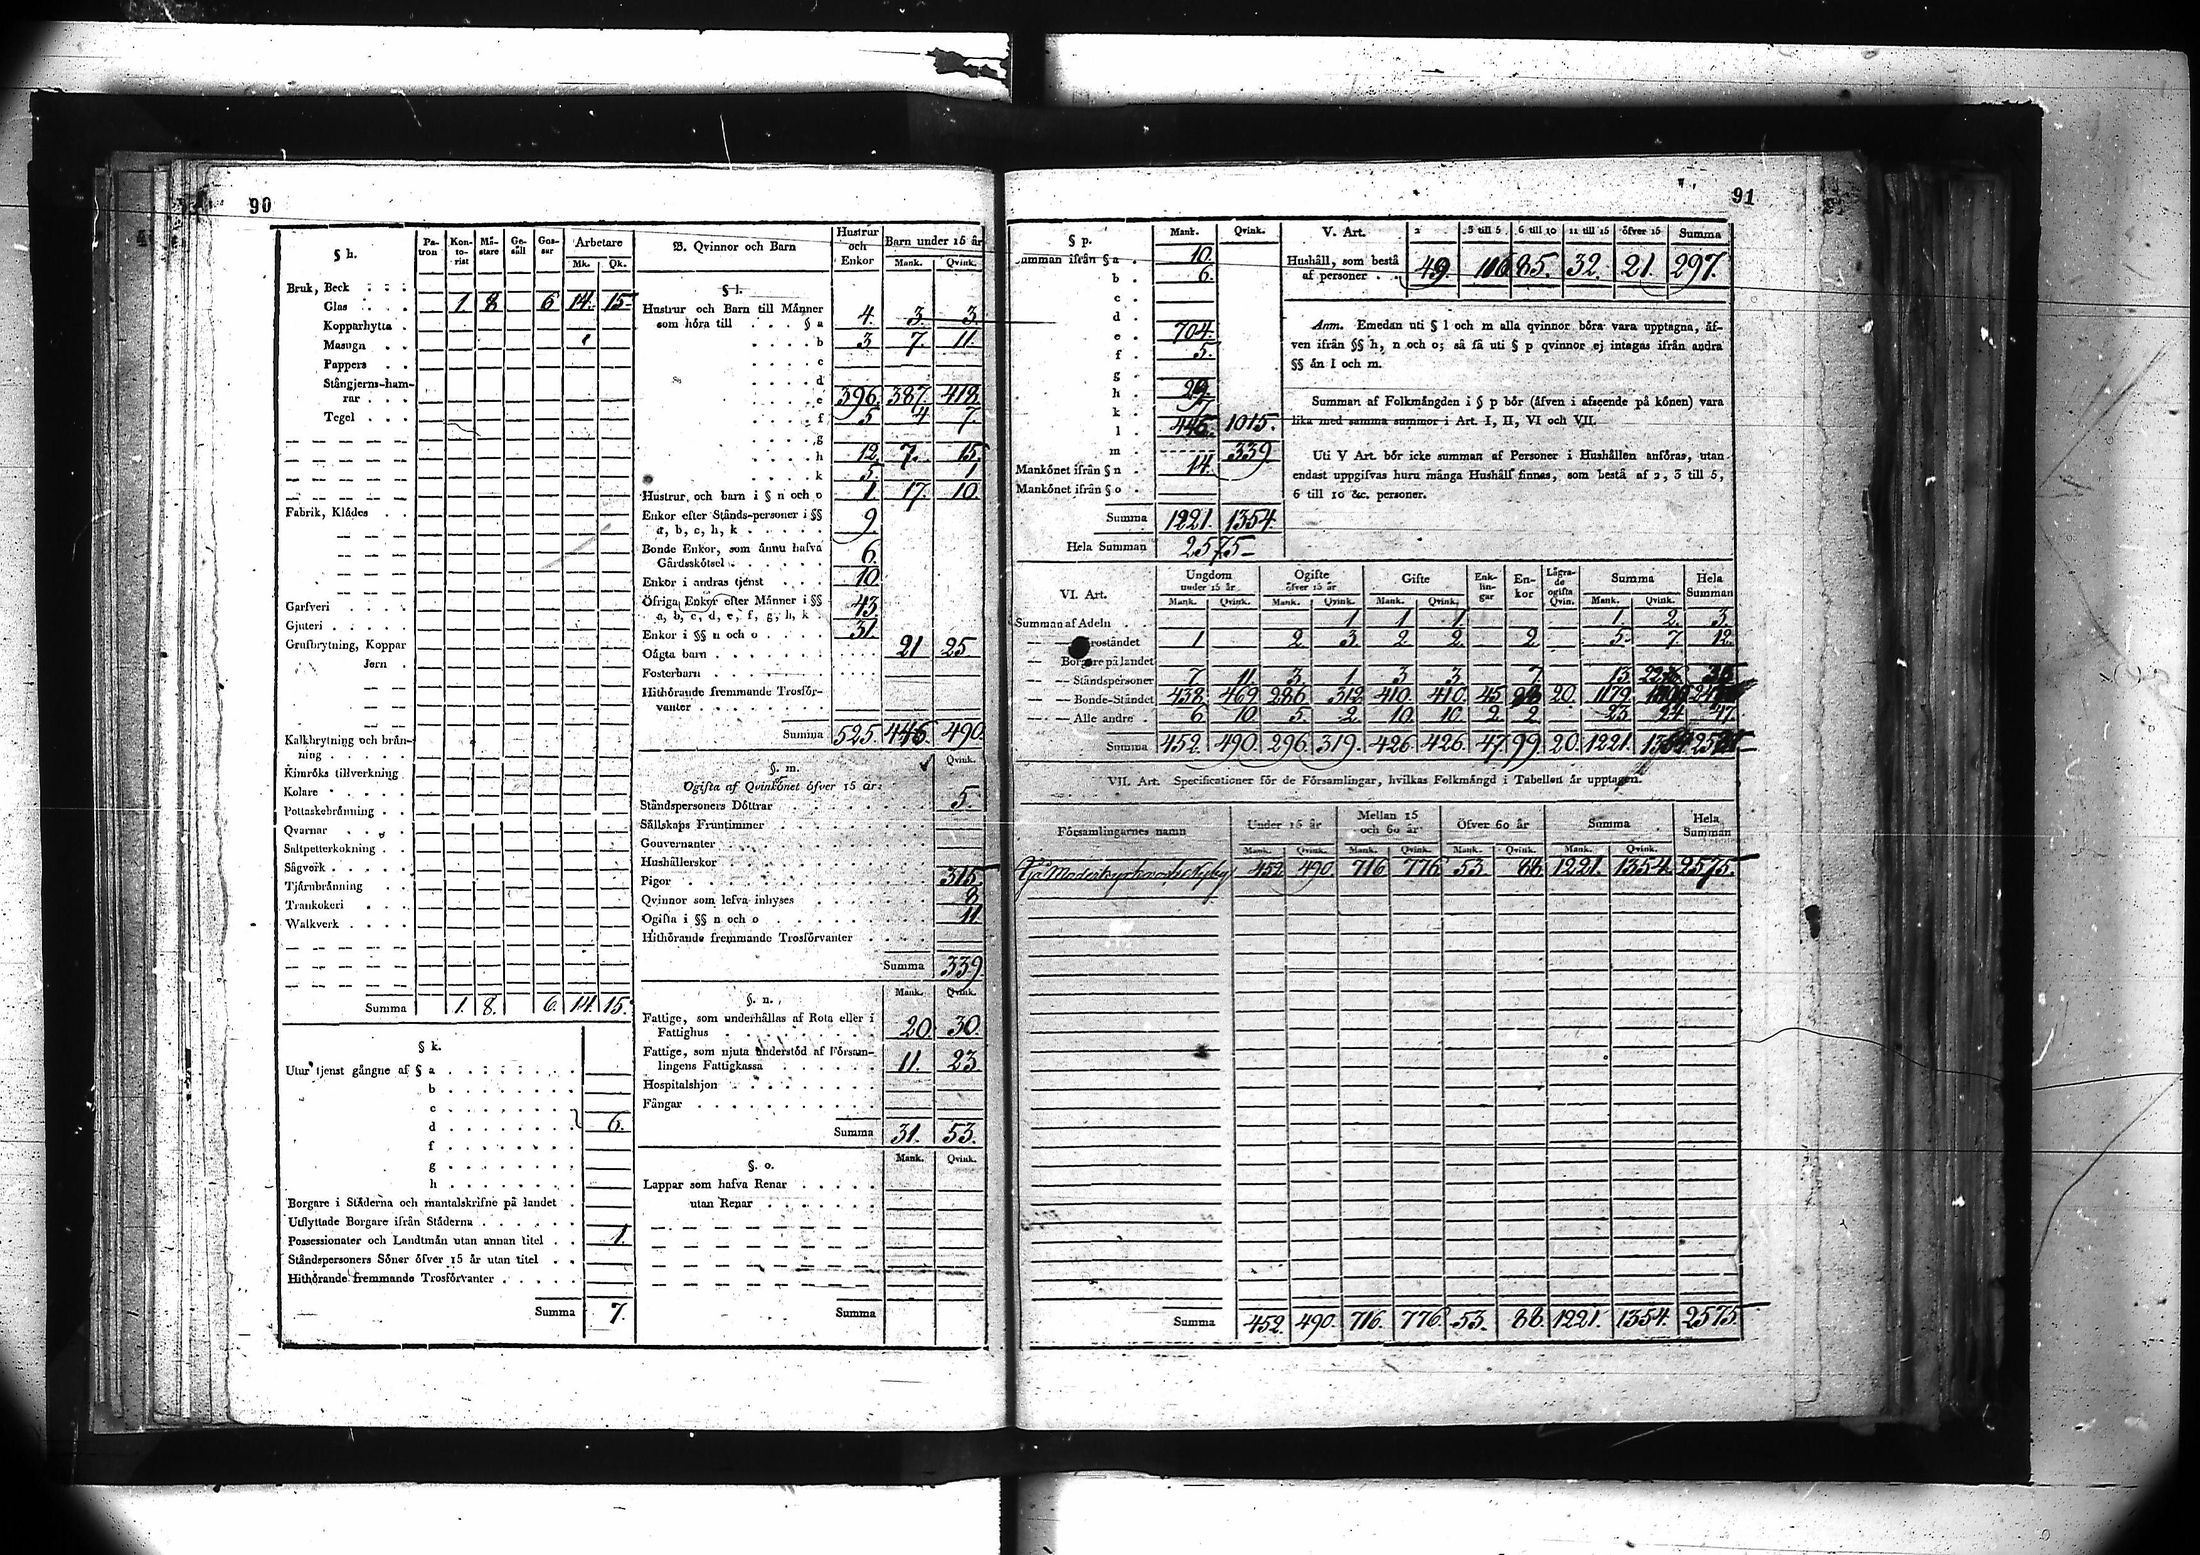 90
§ h.
Pa-tron Kon-to-rist Mä-stare Ge-säll Gos-sar Arbetare
Mk. Qk.
Bruk, Beck
Glas 1 8 6 14. 15
Kopparhytta
Masugn
Pappers
Stångjerns-ham-
rar
Tegel
Fabrik, Klädes
Garfveri
Gjuteri
Grufbrytning, Koppar
Jern
Kalkbrytning och brän-
ning
Kimröks tillverkning
Kolare
Pottaskebränning
Qvarnar
Saltpetterkokning
Sågverk
Tjärubränning
Trankokeri
Walkverk
Summa 1. 8. 6. 14. 15.
§ k.
Utur tjenst gångne af § a
b
c
d 6.
f
g
h
Borgare i Städerna och mantalskrifne på landet
Utflyttade Borgare ifrån Städerna
Possessionater och Landtmän utan annan titel 1.
Ståndspersoners Söner öfver 15 år utan titel
Hithörande fremmande Trosförvanter
Summa 7.
B. Qvinnor och Barn
Hustrur och Enkor
Barn under 15 år
Mank. Qvink.
§ l.
Hustrur och Barn till Männer
som höra till § a 4. 3. 3.
b 3 7. 11.
c
d
e 396. 387. 418
f 5 4 7.
g
h 12. 7. 15
k 5. 1
Hustrur och barn i § n och o 1. 17. 10.
Enkor efter Stånds-personer i §§
a, b, c, h, k 9.
Bonde Enkor, som ännu hafva
Gårdsskötsel 6.
Enkor i andras tjenst 10
Öfriga Enkor efter Männer i §§
a, b, c, d, e, f, g, h, k 43
Enkor i §§ n och o 31.
Oägta barn 21 25
Fosterbarn
Hithörande fremmande Trosför-
vanter
Summa 525. 446. 490.
§. m.
Qvink.
Ogifta af Qvinkönet öfver 15 år:
Ståndspersoners Döttrar 5.
Sällskaps Fruntimmer
Gouvernanter
Hushållerskor
Pigor 315
Qvinnor som lefva inhyses 8
Ogifta i §§ n och o 11.
Hithörande fremmande Trosförvanter
Summa 339.
§. n. Mank. Qvink.
Fattige, som underhållas af Rota eller i
Fattighus 20. 30.
Fattige, som njuta understöd af Försam-
lingens Fattigkassa 11. 23
Hospitalshjon
Fångar
Summa 31. 53.
§. o. Mank. Qvink.
Lappar som hafva Renar
utan Renar
Summa
91
§ p. Mank. Qvink.
Summan ifrån § a 10.
b 6.
c
d
e 704.
f 5.
g
h 29
k 7
l 446. 1015.
m 339
Mankönet ifrån § n 14.
Mankönet ifrån § o
Summa 1221. 1354.
Hela Summan 2575
V. Art. 2 3 till 5 6 till 10 11 till 15 öfver 15 Summa
Hushåll, som bestå
af personer 49. 110 85. 32. 21. 297.
Anm. Emedan uti § l och m alla qvinnor böra vara upptagna, äf-
ven ifrån §§ h, n och o; så få uti § p qvinnor ej intagas ifrån andra
§§ än l och m.
Summan af Folkmängden i § p bör (äfven i afseende på könen) vara
lika med samma summor i Art. I, II, VI och VII.
Uti V Art. bör icke summan af Personer i Hushållen anföras, utan
endast uppgifvas huru många Hushåll finnas, som bestå af 2, 3 till 5,
6 till 10 &c. personer.
VI. Art.
Ungdom under 15 år Ogifte öfver 15 år Gifte Enk-lin-gar En-kor Lägra-de ogifta Qvin. Summa Hela Summan
Mank. Qvink. Mank. Qvink. Mank. Qvink. Mank. Qvink.
Summan af Adeln 1 1 1. 1. 2. 3.
— — roståndet 1 2 3. 2. 2. 2 5 7. 12.
— Borgare på landet
— — Ståndspersoner 7 11. 3. 1. 3 3. 7 13.
— — Bonde-Ståndet 438. 469. 286. 312. 410. 410. 45 20. 1179.
— — Alle andre 6. 10 5. 2. 10. 10. 2. 2 23 24 47.
Summa 452. 490. 296. 319. 426. 426. 47. 99. 20. 1221.
VII. Art. Specificationer för de Församlingar, hvilkas Folkmängd i Tabellen är upptagen.
Församlingarnes namn Under 15 år Mellan 15 och 60 år Öfver 60 år Summa Hela Summan
Mank. Qvink. Mank. Qvink. Mank. Qvink. Mank. Qvink.
452 490. 716 776 53. 88 1221. 1354. 2575.
Summa 452. 490. 716. 776. 53. 88 1221. 1354. 2575.